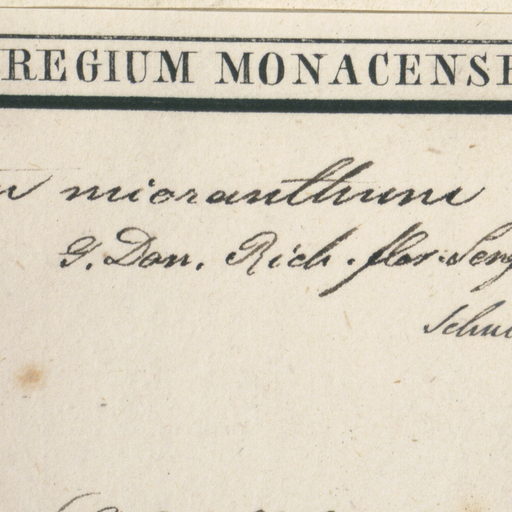 REGIUM MONACENSE
micranthum
G. Don. Rich. flor. Seng
Schu